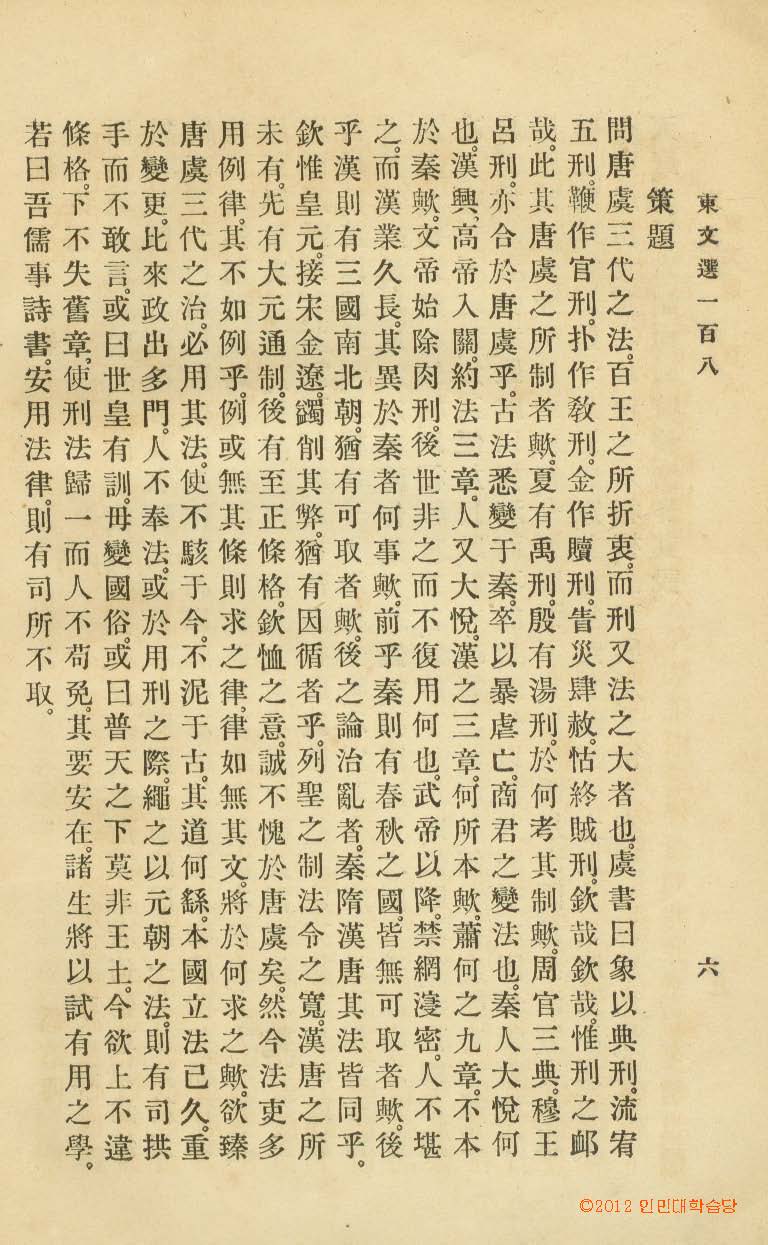 東文選一百八 六
策題
問唐虞三代之法。百王之所折衷。而刑又法之大者也。虞書曰象以典刑。流宥
五刑。鞭作官刑。扑作敎刑。金作贖刑。眚災肆赦。怙終賊刑。欽哉欽哉。惟刑之卹
哉。此其唐虞之所制者歟。夏有禹刑。殷有湯刑。於何考其制歟。周官三典。穆王
呂刑。亦合於唐虞乎。古法悉變于秦。卒以暴虐亡。商君之變法也。秦人大悅何
也。漢興。高帝入關。約法三章。人又大悅。漢之三章。何所本歟。蕭何之九章。不本
於秦歟。文帝始除肉刑。後世非之而不復用何也。武帝以降。禁網寖密。人不堪
之。而漢業久長。其異於秦者何事歟。前乎秦則有春秋之國。皆無可取者歟。後
乎漢則有三國南北朝。猶有可取者歟。後之論治亂者。秦隋漢唐其法皆同乎。
欽惟皇元。接宋金遼。蠲削其弊。猶有因循者乎。列聖之制法令之寬。漢唐之所
未有。先有大元通制。後有至正條格。欽恤之意。誠不愧於唐虞矣。然今法吏多
用例律。其不如例乎。例或無其條則求之律。律如無其文。將於何求之歟。欲臻
唐虞三代之治。必用其法。使不駭于今。不泥于古。其道何繇。本國立法已久。重
於變更。比來政出多門。人不奉法。或於用刑之際。繩之以元朝之法。則有司拱
手而不敢言。或曰世皇有訓。毋變國俗。或曰普天之下莫非王土。今欲上不違
條格。下不失舊章。使刑法歸一而人不苟免。其要安在。諸生將以試有用之學。
若曰吾儒事詩書。安用法律。則有司所不取。
©2012 인민대학습당